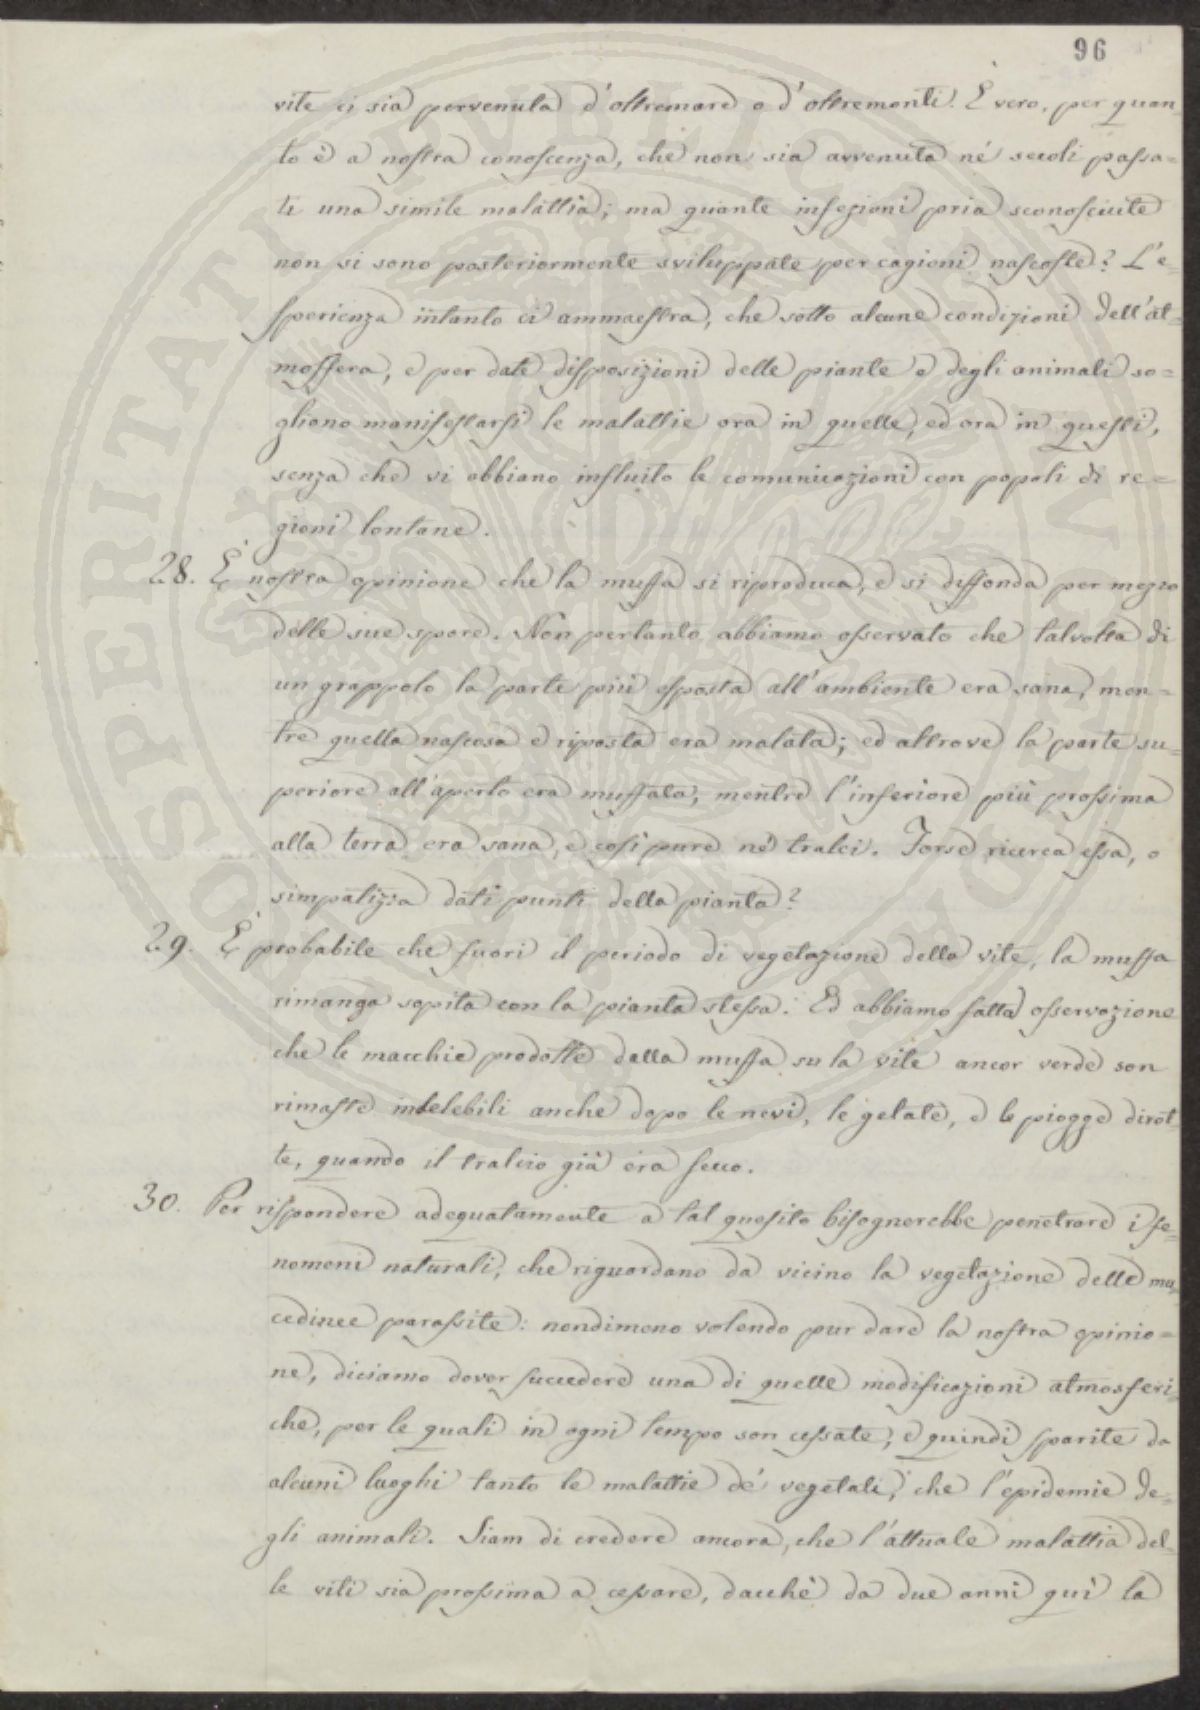 96
vite ci sia pervenuta d'oltremare o d'oltremonti. È vero, per quan
to è a nostra conoscenza, che non sia avvenuta nè secoli passa=
ti una simile malattia; ma quante infezioni pria sconosciute
non si sono posteriormente sviluppate per cagioni nascoste? L'e=
sperienza intanto ci ammaestra, che sotto alcune condizioni dell'at=
mosfera, e per date disposizioni delle piante e degli animali so=
gliono manifestarsi le malattie ora in quelle, ed ora in questi,
senza che vi abbiano influito le comunicazioni con popoli di re=
gioni lontane.
28. È nostra opinione che la muffa si riproduca, e si diffonda per mezzo
delle sue spore. Non pertanto abbiamo osservato che talvolta di
un grappolo la parte più esposta all'ambiente era sana, men=
tre quella nascosa e riposta era malata; ed altrove la parte su=
periore all'aperto era muffata, mentre l'inferiore più prossima
alla terra era sana, e così pure nè tralci. Forse ricerca essa, o
simpatizza dati punti della pianta?
29. È probabile che fuori il periodo di vegetazione della vite, la muffa
rimanga sopita con la pianta stessa. Ed abbiamo fatta osservazione
che le macchie prodotte dalla muffa su la vite ancor verde son
rimaste indelebili anche dopo le nevi, le gelate, e le piogge dirot=
te, quando il tralcio già era secco.
30. Per rispondere adeguatamente a tal quesito bisognerebbe penetrare i fe=
nomeni naturali, che riguardano da vicino la vegetazione delle mu
cedinee parassite: nondimeno volendo pur dare la nostra opinio=
ne, diciamo dover succedere una di quelle modificazioni atmosferi=
che, per le quali in ogni tempo son cessate, e quindi sparite da
alcuni luoghi tanto le malattie de' vegetali, che l'epidemie de=
gli animali. Siam di credere ancora, che l'attuale malattia del=
le viti sia prossima a cessare, dacchè da due anni quì la
PROSPERITATI PVBLICAE